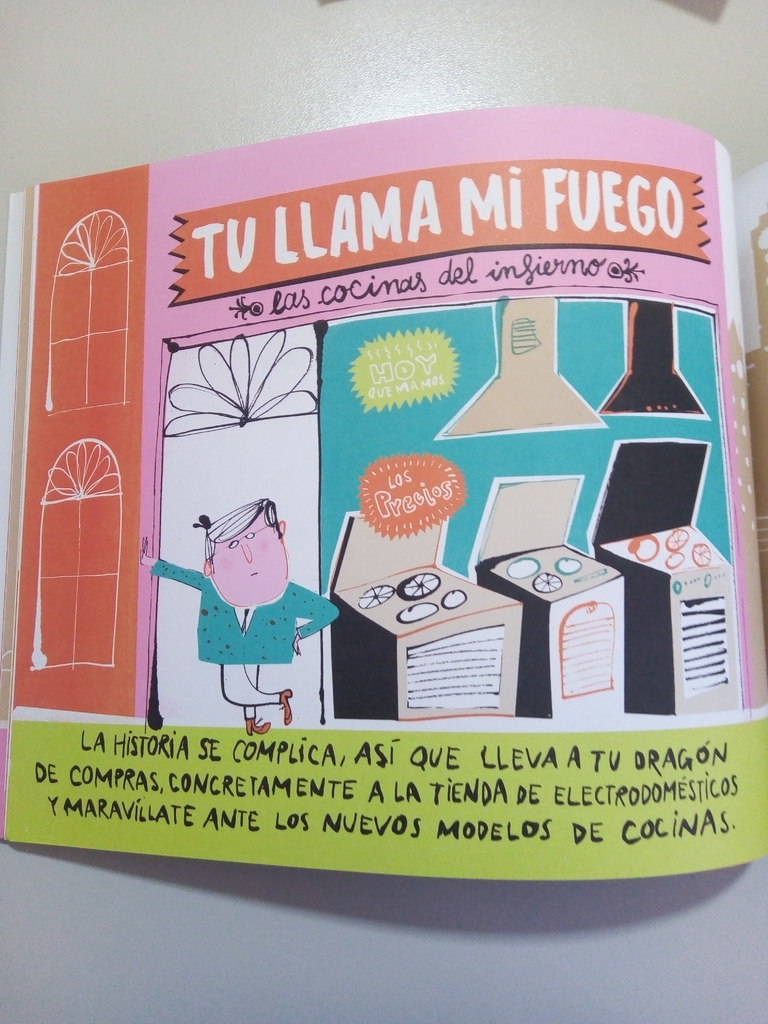 TU LLAMA MI FUEGO
las cocinas del infierno
HOY
QUEMAMOS
LOS
Precios
LA HISTORIA SE COMPLICA, ASÍ QUE LLEVA A TU DRAGÓN
DE COMPRAS, CONCRETAMENTE A LA TIENDA DE ELECTRODOMÉSTICOS
Y MARAVÍLLATE ANTE LOS NUEVOS MODELOS DE COCINAS.